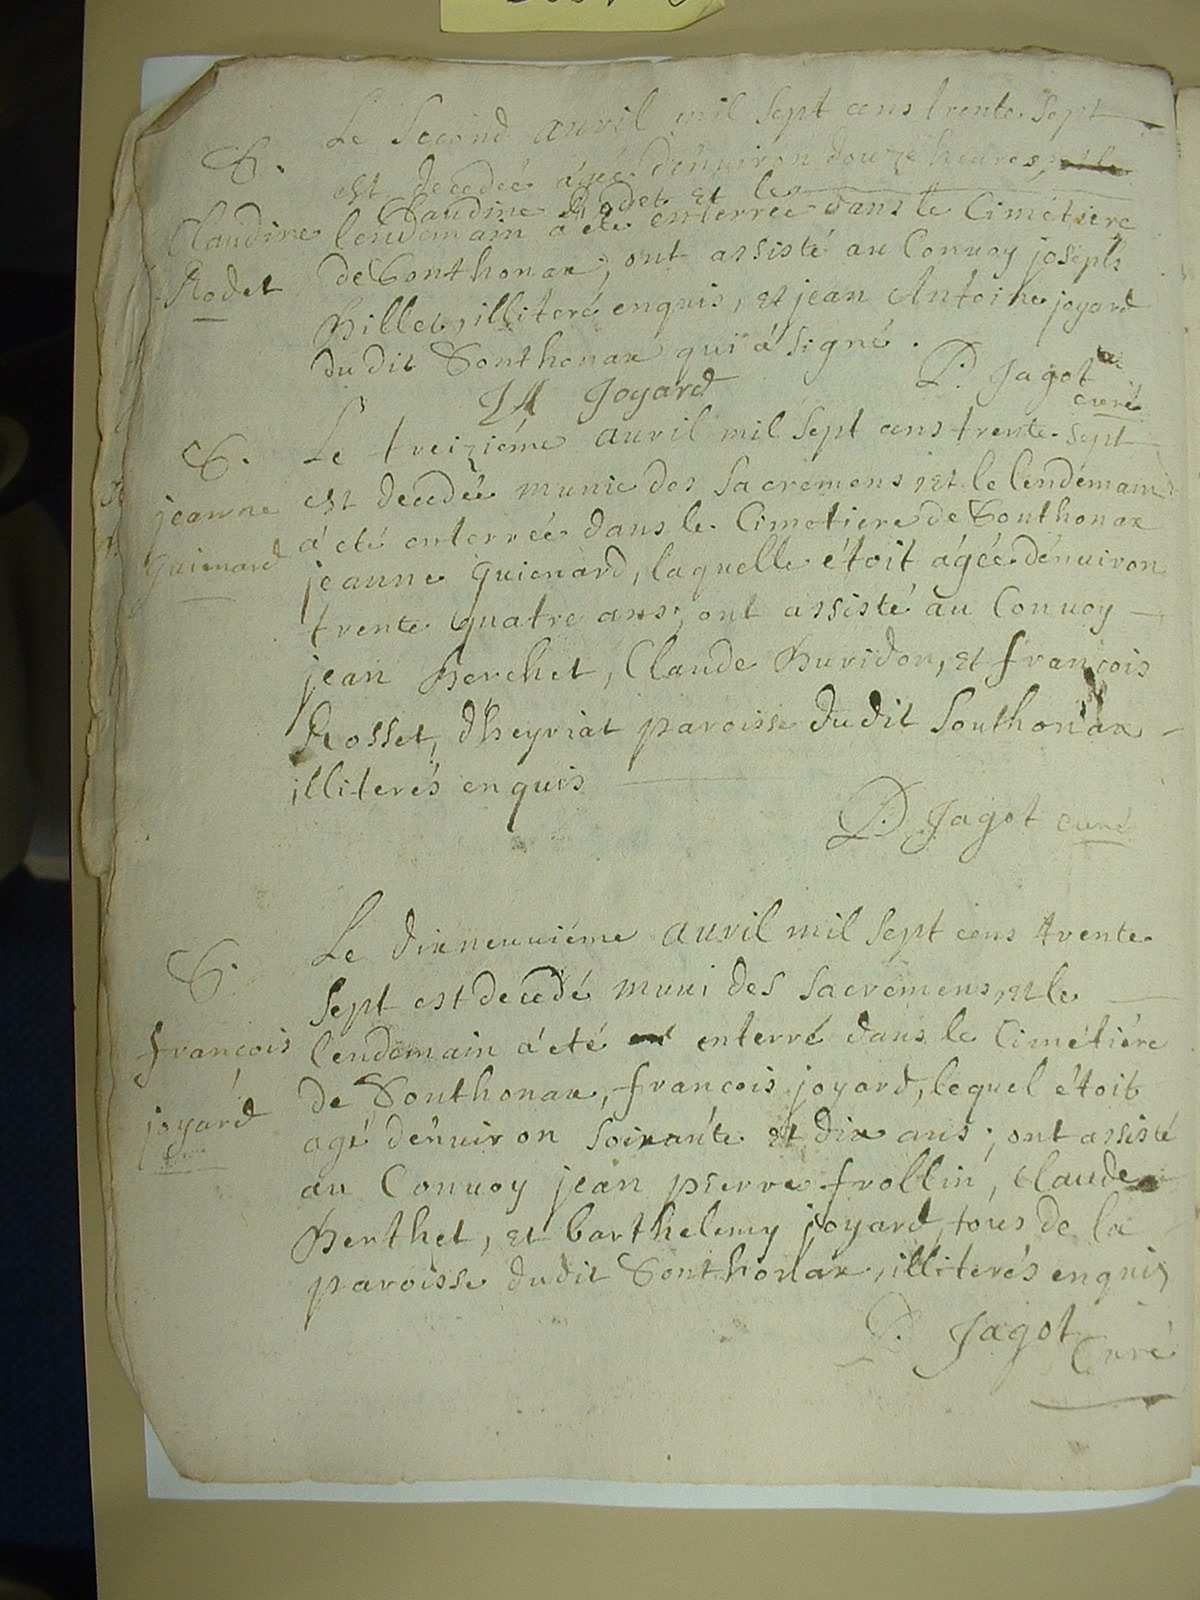 Le second avril mil sept cens trente sept
S.
est decedeé ageé dénuiron douze heures,
Claudine Rodet et le
Claudine
lendemain a été enterrée dans le Cimétiere
Rodet
de Sonthonax, ont assisté au Conuoy joseph
Billet, illiteré enquis, et jean Antoine joyard
du dit Sonthonax qui á signé.
JA Joyard
D. Jagot
curé
S.
Le treiziéme auril mil sept cens trente sept
est decedée munie des sacremens, et le lendémain
jeanne
á eté enterrée dans le Cimetiere de Sonthonax
Guienard
jeanne Guienard, laquelle étoit ágée dénuiron
trente quatre ans; ont assisté au Conuoy
jean Berchet, Claude Buridon, et françois
Rosset, dheyriat paroisse dudit Southonax
illiterés enquis
D. Jagot curé
Le dixneuuiéme auril mil sept cens trente
S.
sept est decedé muni des sacremens, et le
françois
lendemain á eté enterré dans le Cimétiére
de Sonthonax, françois joyard, lequel étoit
joyard
agé dénuiron soixante et dix ans; ont assisté
au Conuoy jean pierre frollin, Claude
Berthet, et barthelemy joyard, tous de la
paroisse dudit Sonthonax, illiterés enquis
D. Jagot
Curé